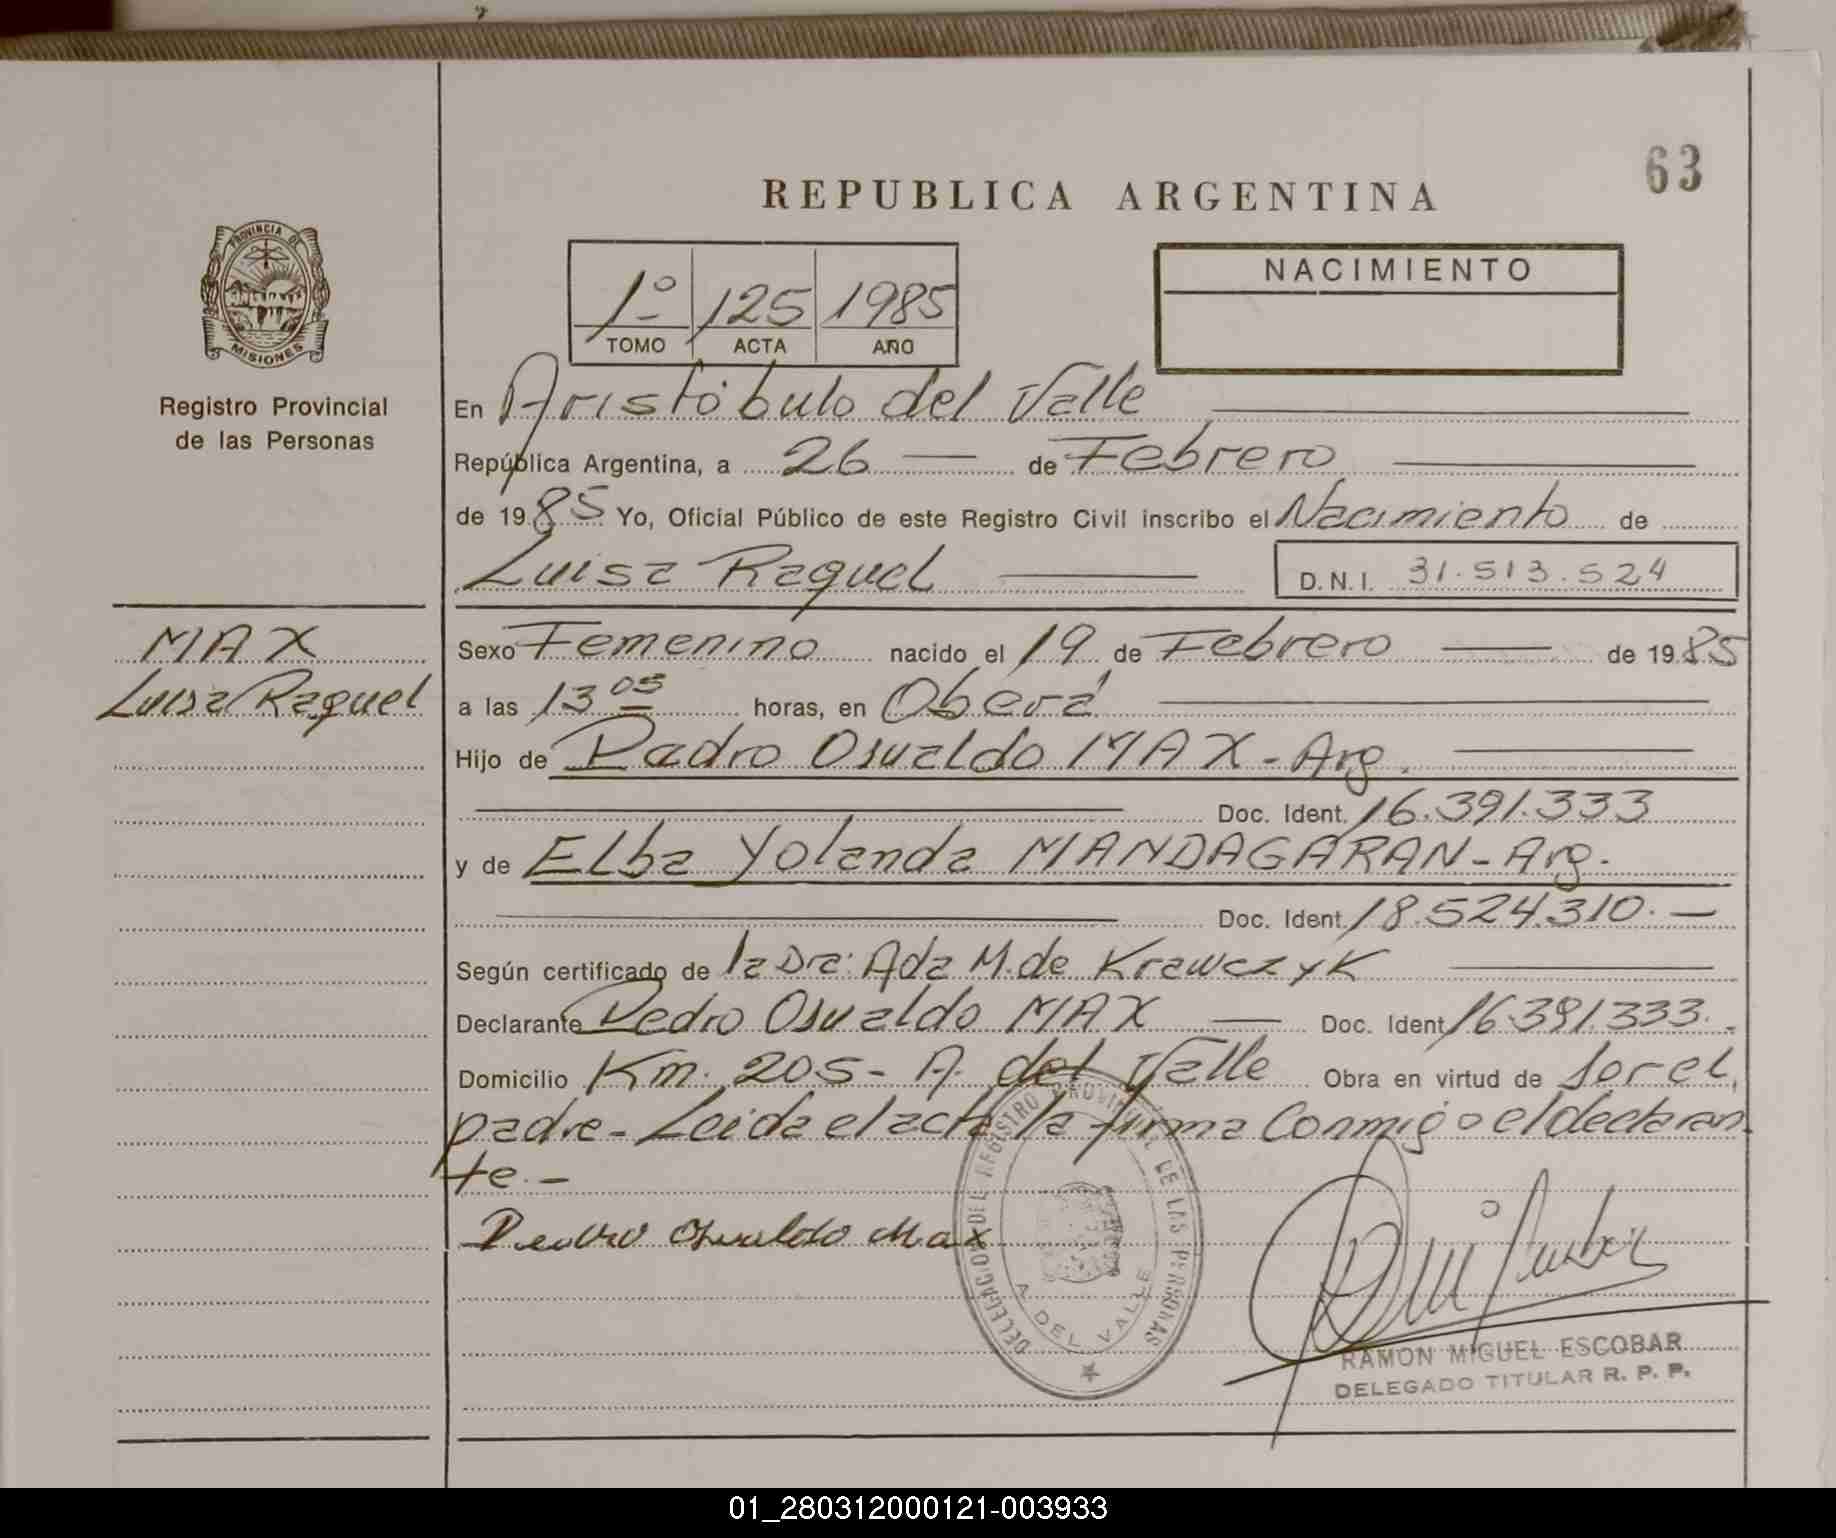 63
REPUBLICA ARGENTINA
PROVINCIA DE
MISIONES
Registro Provincial
de las Personas
1º 125 1985
TOMO ACTA AÑO
NACIMIENTO
En Aristóbulo del Valle
República Argentina, a 26 de Febrero
de 1985 Yo, Oficial Público de este Registro Civil inscribo el Nacimiento de
Luisa Raquel D.N.I. 31.513.524
MAX
Luisa Raquel
Sexo Femenino nacido el 19 de Febrero de 1985
a las 13 05 horas, en Oberá
Hijo de Pedro Osvaldo MAX - Arg.
Doc. Ident. 16.391.333
y de Elba Yolanda MANDAGARAN - Arg.
Doc. Ident. 18.524.310.-
Según certificado de la Dra. Ada M. de Krawczyk
Declarante Pedro Osvaldo MAX Doc. Ident 16.391.333.-
Domicilio Km. 205 - A. del Valle Obra en virtud de ser el
padre - Leida el acta la firma conmigo el declaran-
te.-
Pedro Osvaldo Max
DELEGACION DEL REGISTRO PROVINCIAL DE LAS PERSONAS
A DEL VALLE
RAMON MIGUEL ESCOBAR
DELEGADO TITULAR R. P. P.
01_280312000121-003933